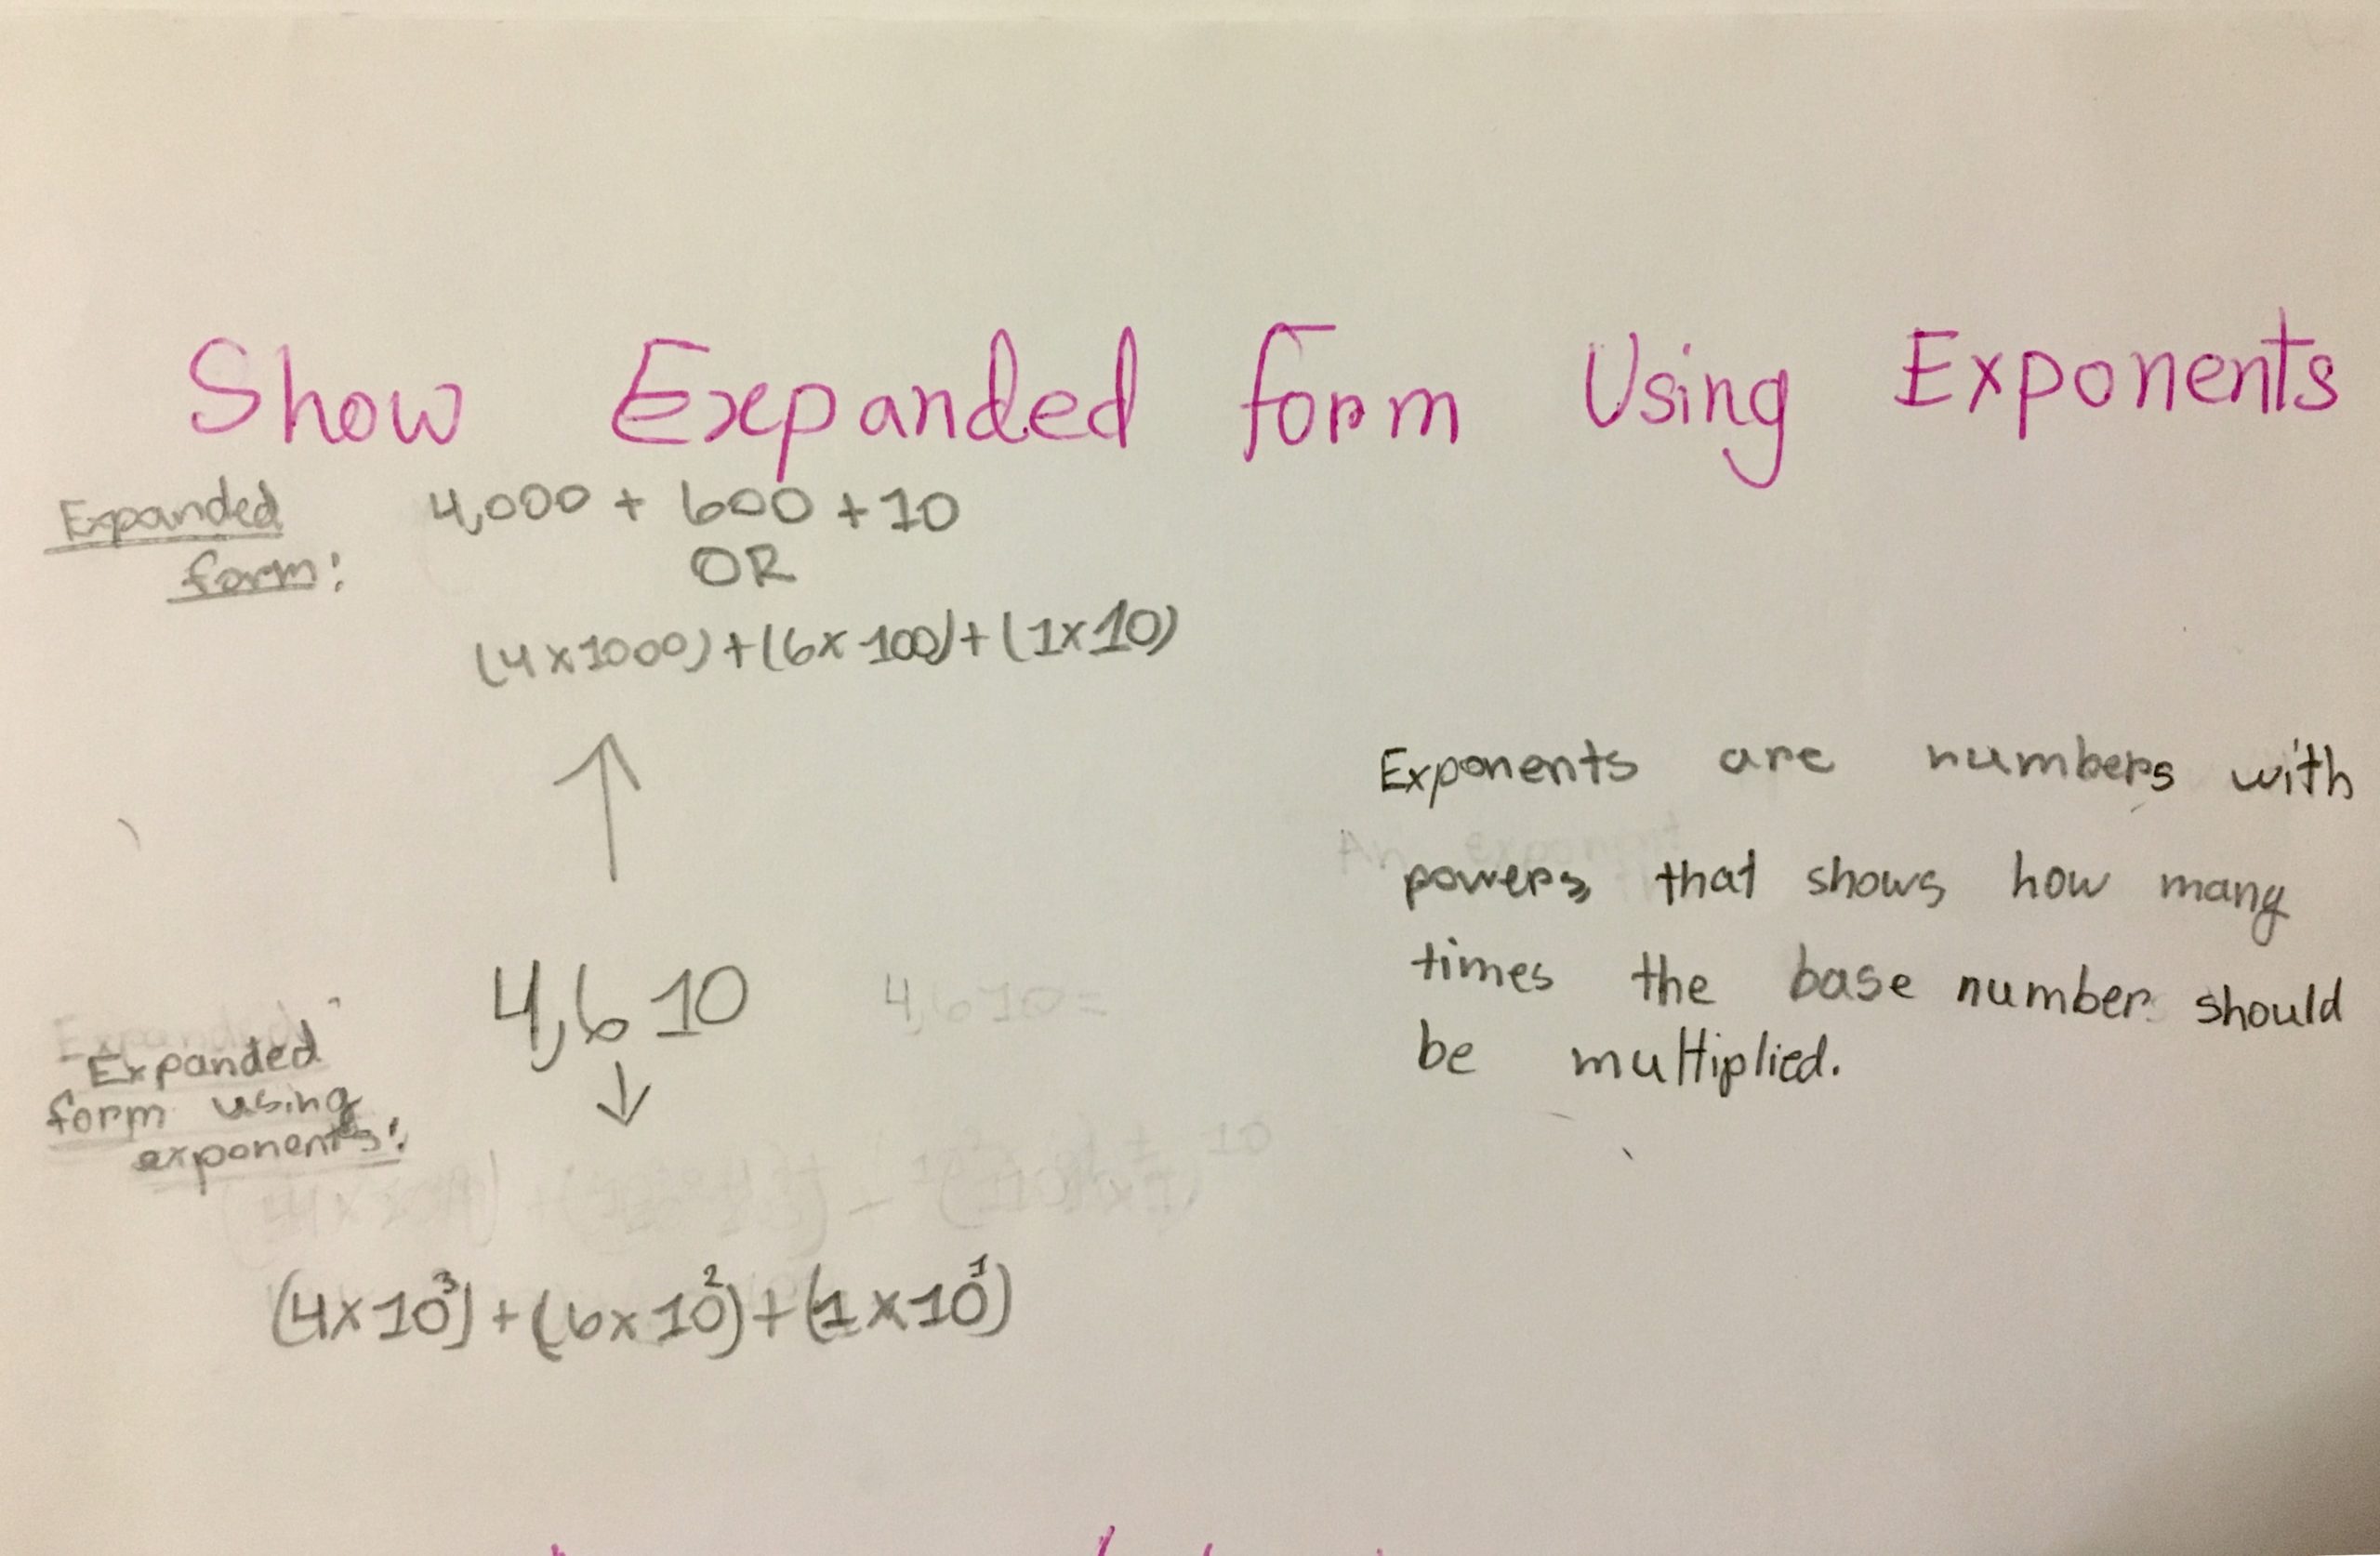 Show Expanded form Using Exponents
Expanded
form:
4,000 + 600 + 10
OR
(4x1000)+(6x100)+(1x10)
Exponents are numbers with
powers, that shows how many
times the base number should
be multiplied.
4,610
4,610=
Expanded
form using
exponents:
(4x10³)+(6x10²)+(1x10¹)